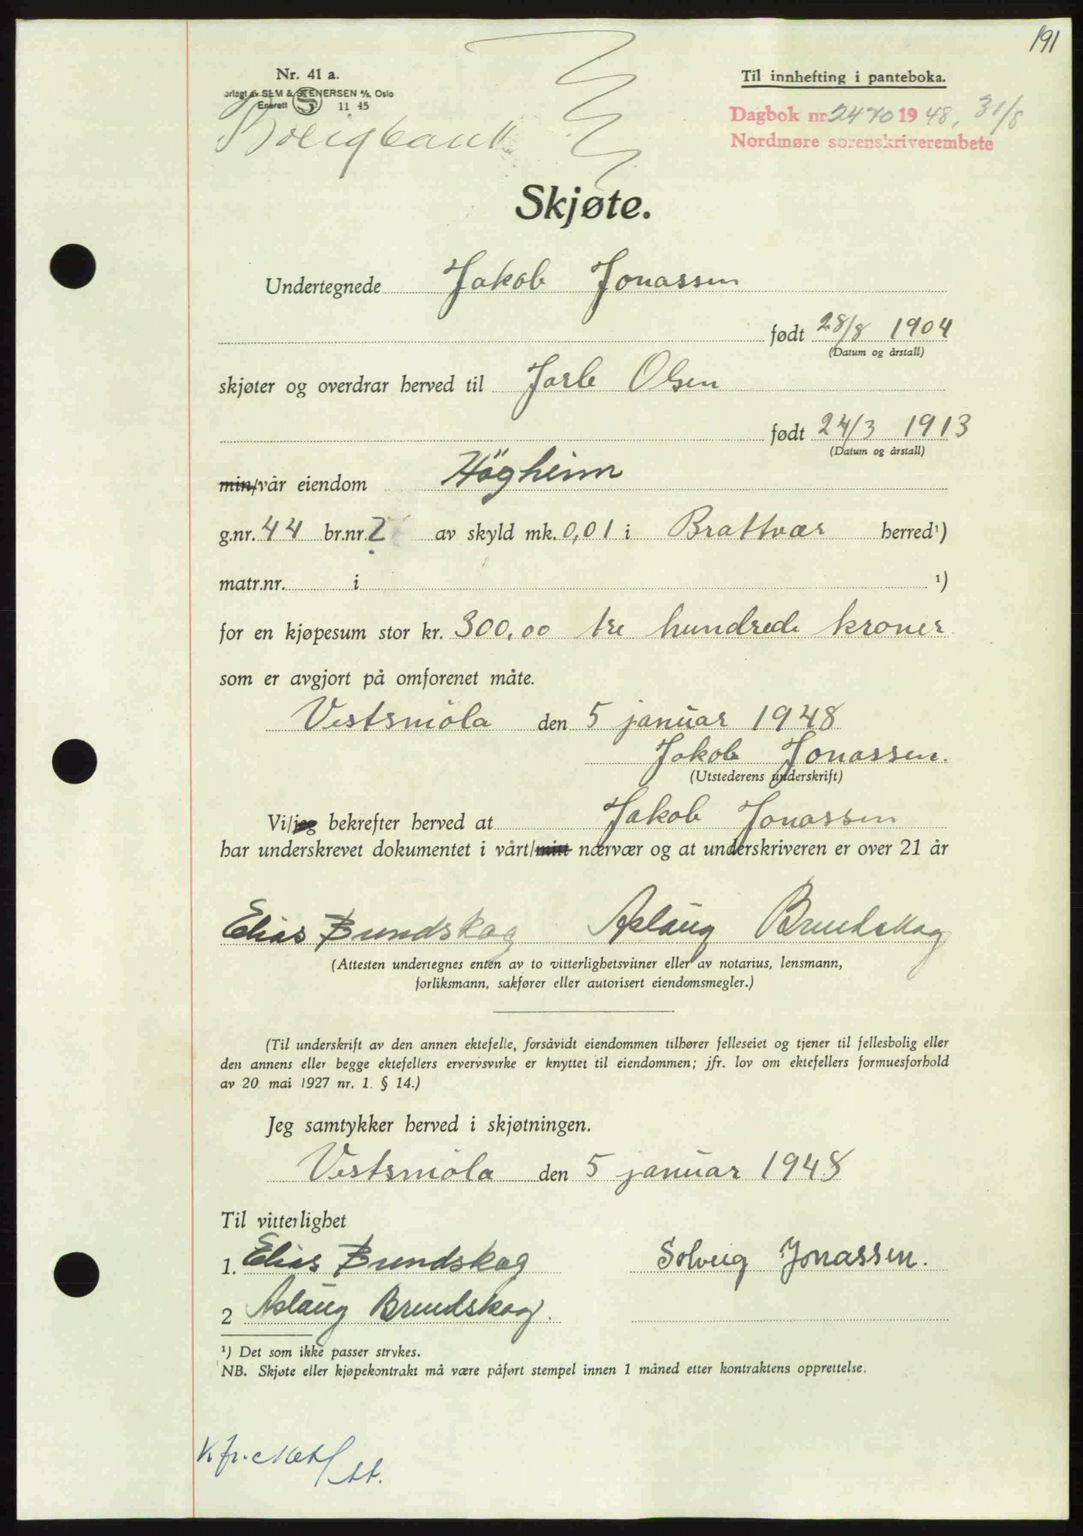 191
Nr. 41 a.
Til innhefting i panteboka.
orlagt av SEM & STENERSEN A/S, Oslo
Enerett S 11 45
Dagbok nr. 2470 1948, 31/8
Boligbank
Nordmøre sorenskriverembete
Skjøte.
Undertegnede Jakob Jonassen
født 28/8 1904
(Datum og årstall)
skjøter og overdrar herved til Jarle Olsen
født 24/3 1913
(Datum og årstall)
min/vår eiendom Högheim
g.nr. 44 br.nr. 2 av skyld mk. 0,01 i Brattvær herred¹)
matr.nr. i ¹)
for en kjøpesum stor kr. 300,00 tre hundrede kroner
som er avgjort på omforenet måte.
Vestsmöla den 5 januar 1948
Jakob Jonassen.
(Utstederens underskrift)
Vi/jeg bekrefter herved at Jakob Jonassen
har underskrevet dokumentet i vårt/mitt nærvær og at underskriveren er over 21 år
Elias Brundskag Aslaug Brundskag
(Attesten undertegnes enten av to vitterlighetsvitner eller av notarius, lensmann,
forliksmann, sakfører eller autorisert eiendomsmegler.)
(Til underskrift av den annen ektefelle, forsåvidt eiendommen tilhører felleseiet og tjener til fellesbolig eller
den annens eller begge ektefellers ervervsvirke er knyttet til eiendommen; jfr. lov om ektefellers formuesforhold
av 20 mai 1927 nr. 1. § 14.)
Jeg samtykker herved i skjøtningen.
Vestsmöla den 5 januar 1948
Til vitterlighet
1. Elias Brundskag Solveig Jonassen.
2 Aslaug Brundskag.
¹) Det som ikke passer strykes.
NB. Skjøte eller kjøpekontrakt må være påført stempel innen 1 måned etter kontraktens opprettelse.